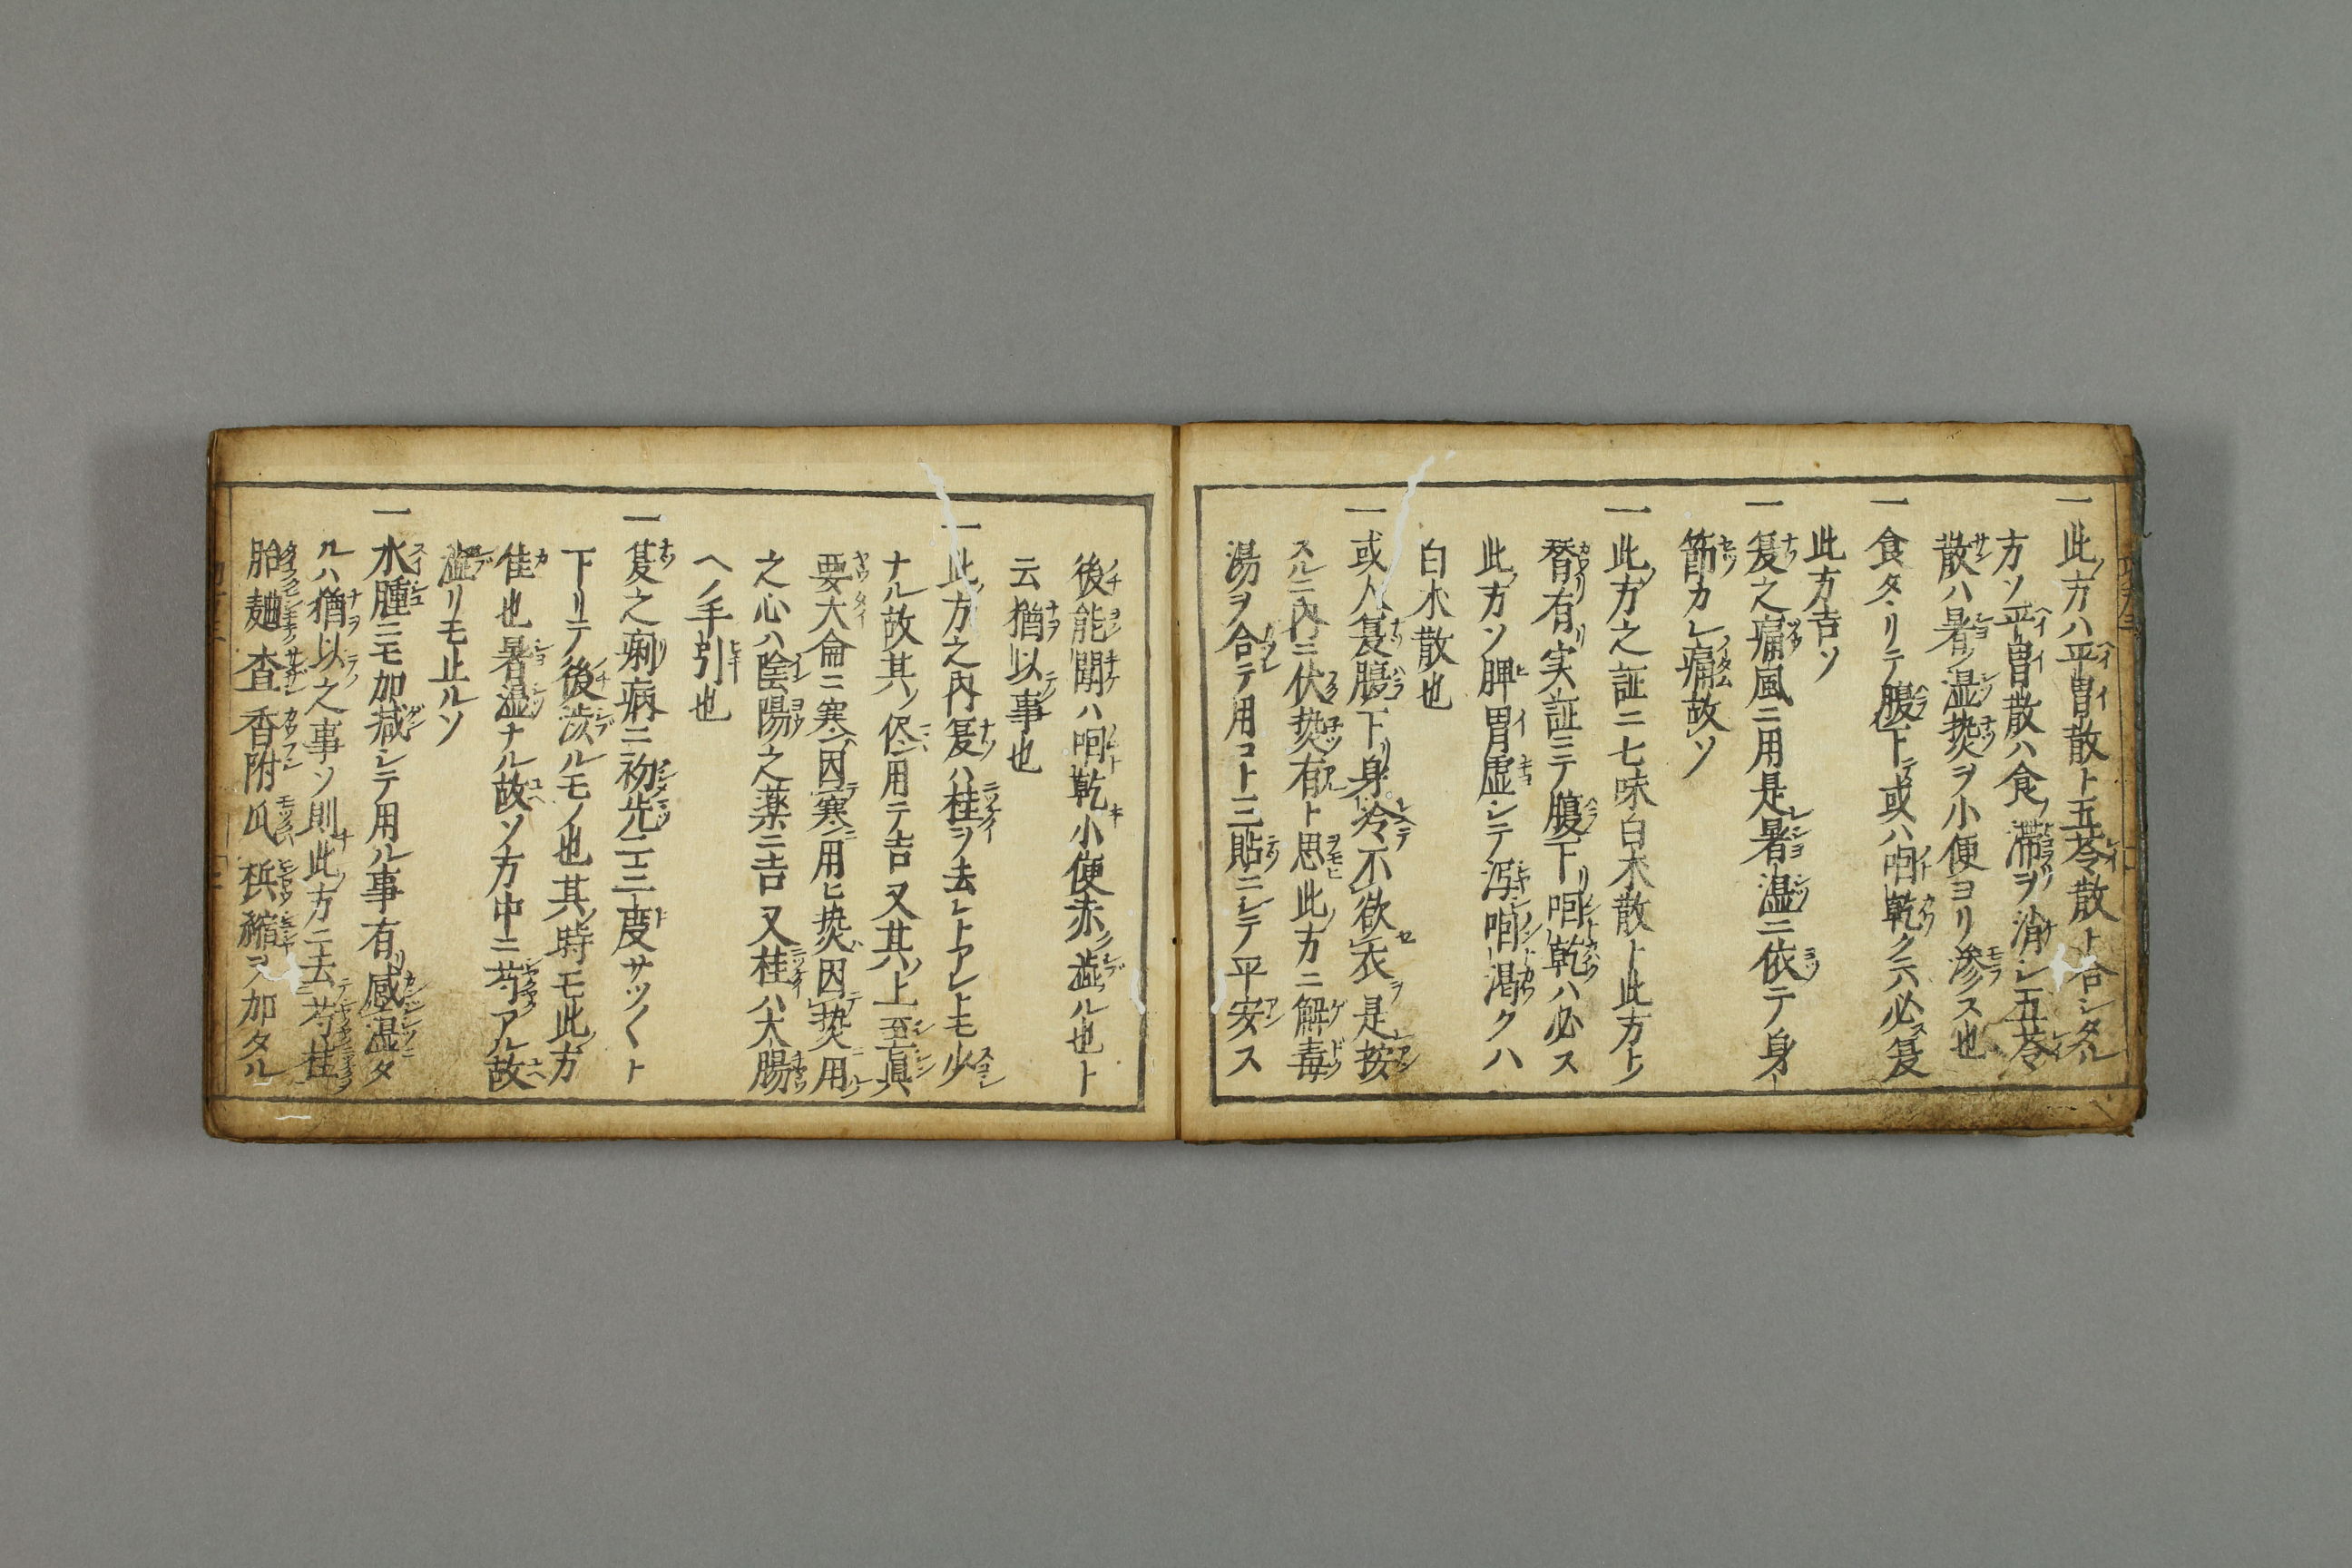 一此ノ方ハ平胃散ト五苓散ト合シタル
方ソ平胃散ハ食ノ滞ヲ消シ五苓
散ハ暑ノ湿𤍠ヲ小便ヨリ滲ス也
一食タヽリテ腹下テ或ハ咽乾ク六必夏
此方吉ソ
一夏之痛風ニ用是暑湿ニ依テ身ノ
節カレ痛故ソ
一此ノ方之証ニ七味白朮散ト此方トノ
替有リ実証ニテ腹下リ咽乾ハ必ス
此ノ方ソ脾胃虚シテ瀉咽渇クハ
白朮散也
一或人夏腹下リ身冷テ不欲衣ヲ是按
スルニ内ニ伏𤍠有ト思此ノ方ニ解毒
湯ヲ合テ用コト三貼ニシテ平安ス
後能聞ハ咽乾小便赤ク澁ル也ト
云猶以事也
一此ノ方之内夏ハ桂ヲ去レトアレトモ少
ナル故其ノ侭用テ吉又其ノ上至眞
要大侖ニ寒ハ因寒ニ用ヒ𤍠ハ因𤍠ニ用ル
之心ハ陰陽之薬ニ吉又桂ハ大腸
ヘノ手引也
一夏之痢病ニ初先二三度サツ〱ト
下リテ後渋ルモノ也其ノ時モ此ノ方
佳也暑湿ナル故ソ方中ニ芍アル故
澁リモ止ルソ
一水腫ニモ加减シテ用ル事有リ感湿タ
ルハ猶以之事ソ則此ノ方ニ去芍桂
胎麯査香附瓜檳縮ヲ加タル